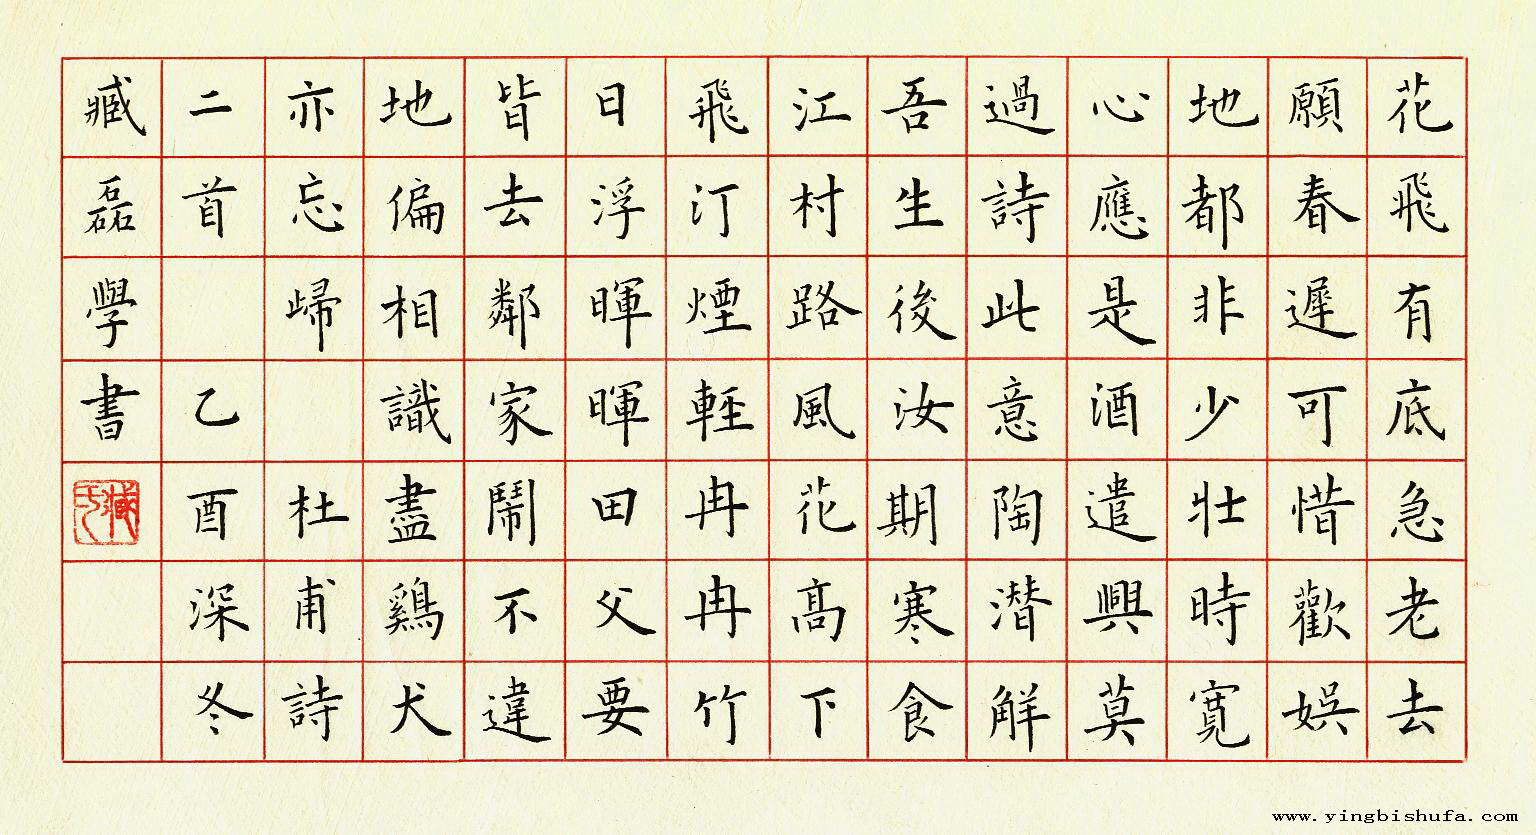 花飛有底急老去
願春遲可惜歡娛
地都非少壯時寬
心應是酒遣興莫
過詩此意陶潛解
吾生後汝期寒食
江村路風花高下
飛汀煙輕冉冉竹
日浮暉暉田父要
皆去鄰家鬧不違
地偏相識盡鷄犬
亦忘歸 杜甫詩
二首 乙酉深冬
臧磊學書
臧氏
www.yingbishufa.com